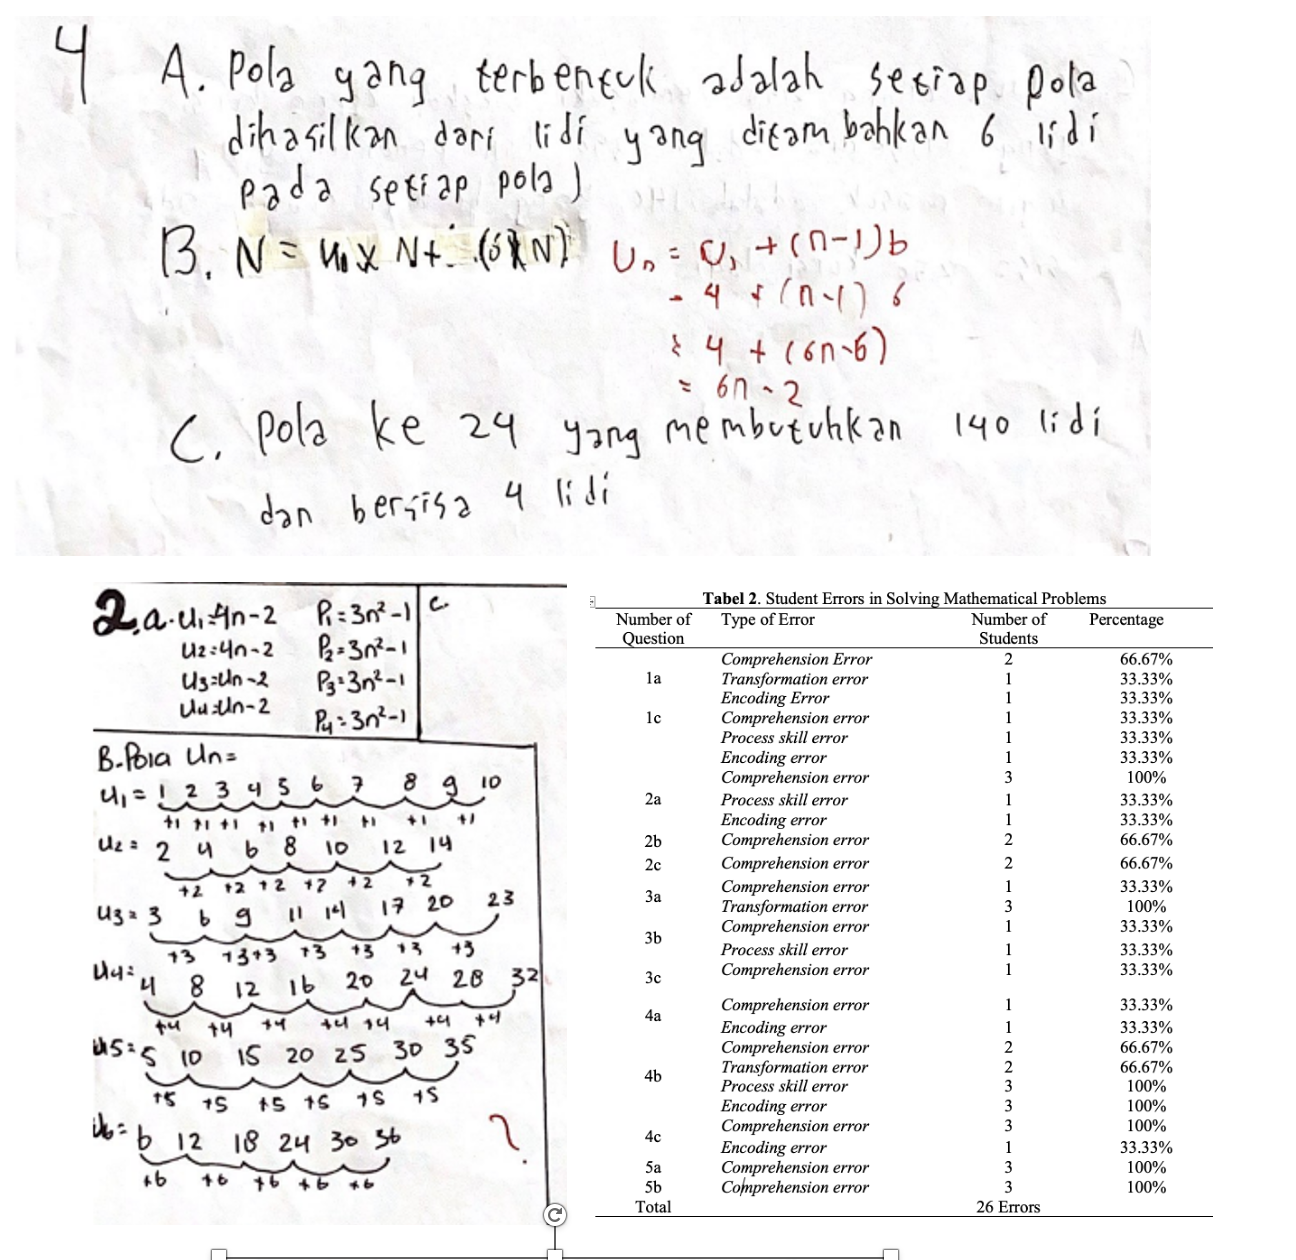 4 A. Pola yang terbentuk adalah setiap pola
dihasilkan dari lidi yang ditambahkan 6 lidi
pada setiap pola)
B. N = U₁ x N + (6 x N)
Uₙ = U₁ + (n-1)b
= 4 + (n-1) 6
= 4 + (6n-6)
= 6n - 2
C. Pola ke 24 yang membutuhkan 140 lidi
dan bersisa 4 lidi
2.a. U₁=4n-2 P₁=3n²-1 c.
U2=4n-2 P₂=3n²-1
U3=Un-2 P₃=3n²-1
U4=Un-2 P4=3n²-1
B. Pola Un=
U₁ = 1 2 3 4 5 6 7 8 9 10
+1 +1 +1 +1 +1 +1 +1 +1 +1
U2 = 2 4 6 8 10 12 14
+2 +2 +2 +2 +2 +2
U3 = 3 6 9 11 14 17 20 23
+3 +3 +3 +3 +3 +3 +3
U4= 4 8 12 16 20 24 28 32
+4 +4 +4 +4 +4 +4 +4
U5= 5 10 15 20 25 30 35
+5 +5 +5 +5 +5 +5
U6= 6 12 18 24 30 36 ?
+6 +6 +6 +6 +6
Tabel 2. Student Errors in Solving Mathematical Problems
Number of Question Type of Error Number of Students Percentage
Comprehension Error 2 66.67%
1a Transformation error 1 33.33%
Encoding Error 1 33.33%
1c Comprehension error 1 33.33%
Process skill error 1 33.33%
Encoding error 1 33.33%
Comprehension error 3 100%
2a Process skill error 1 33.33%
Encoding error 1 33.33%
2b Comprehension error 2 66.67%
2c Comprehension error 2 66.67%
3a Comprehension error 1 33.33%
Transformation error 3 100%
3b Comprehension error 1 33.33%
Process skill error 1 33.33%
3c Comprehension error 1 33.33%
4a Comprehension error 1 33.33%
Encoding error 1 33.33%
Comprehension error 2 66.67%
4b Transformation error 2 66.67%
Process skill error 3 100%
Encoding error 3 100%
4c Comprehension error 3 100%
Encoding error 1 33.33%
5a Comprehension error 3 100%
5b Comprehension error 3 100%
Total 26 Errors